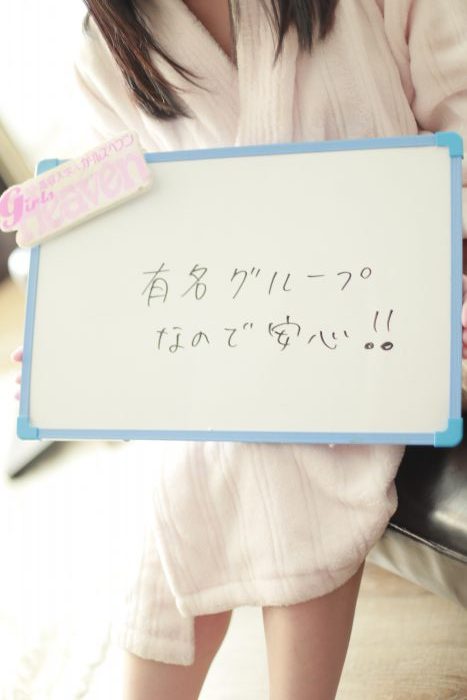 ガールズヘブン
girls
heaven
有名グループ
なので安心!!